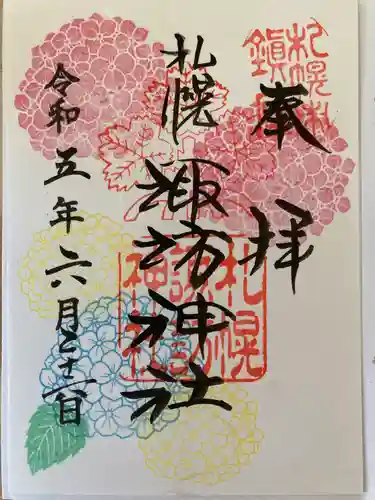 奉拝
札幌諏訪神社
令和五年六月二十一日
札幌諏訪神社